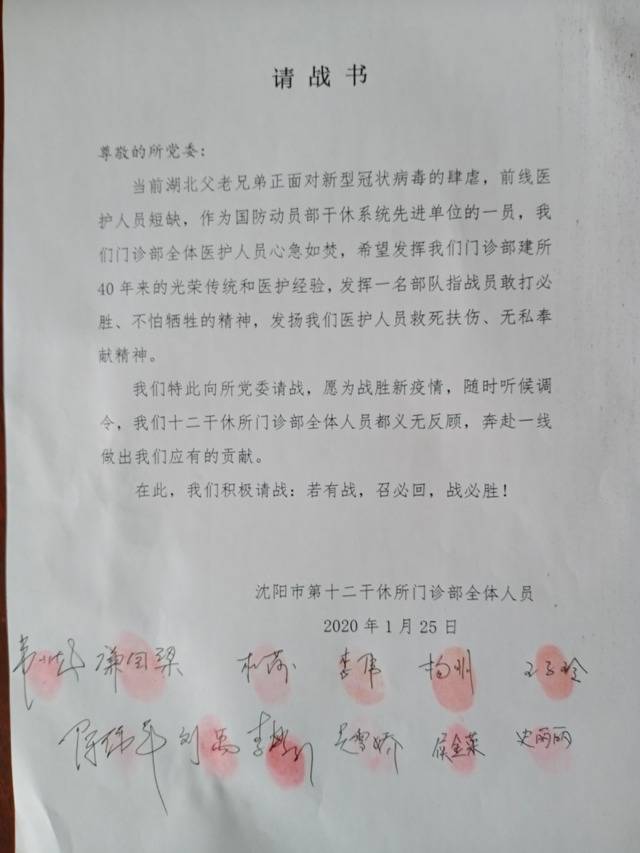 请战书
尊敬的所党委：
当前湖北父老兄弟正面对新型冠状病毒的肆虐，前线医
护人员短缺，作为国防动员部干休系统先进单位的一员，我
们门诊部全体医护人员心急如焚，希望发挥我们门诊部建所
40年来的光荣传统和医护经验，发挥一名部队指战员敢打必
胜、不怕牺牲的精神，发扬我们医护人员救死扶伤、无私奉
献精神。
我们特此向所党委请战，愿为战胜新疫情，随时听候调
令，我们十二干休所门诊部全体人员都义无反顾，奔赴一线
做出我们应有的贡献。
在此，我们积极请战：若有战，召必回，战必胜！
沈阳市第十二干休所门诊部全体人员
2020年1月25日
李伟 杨州
侯金荣 史丽丽